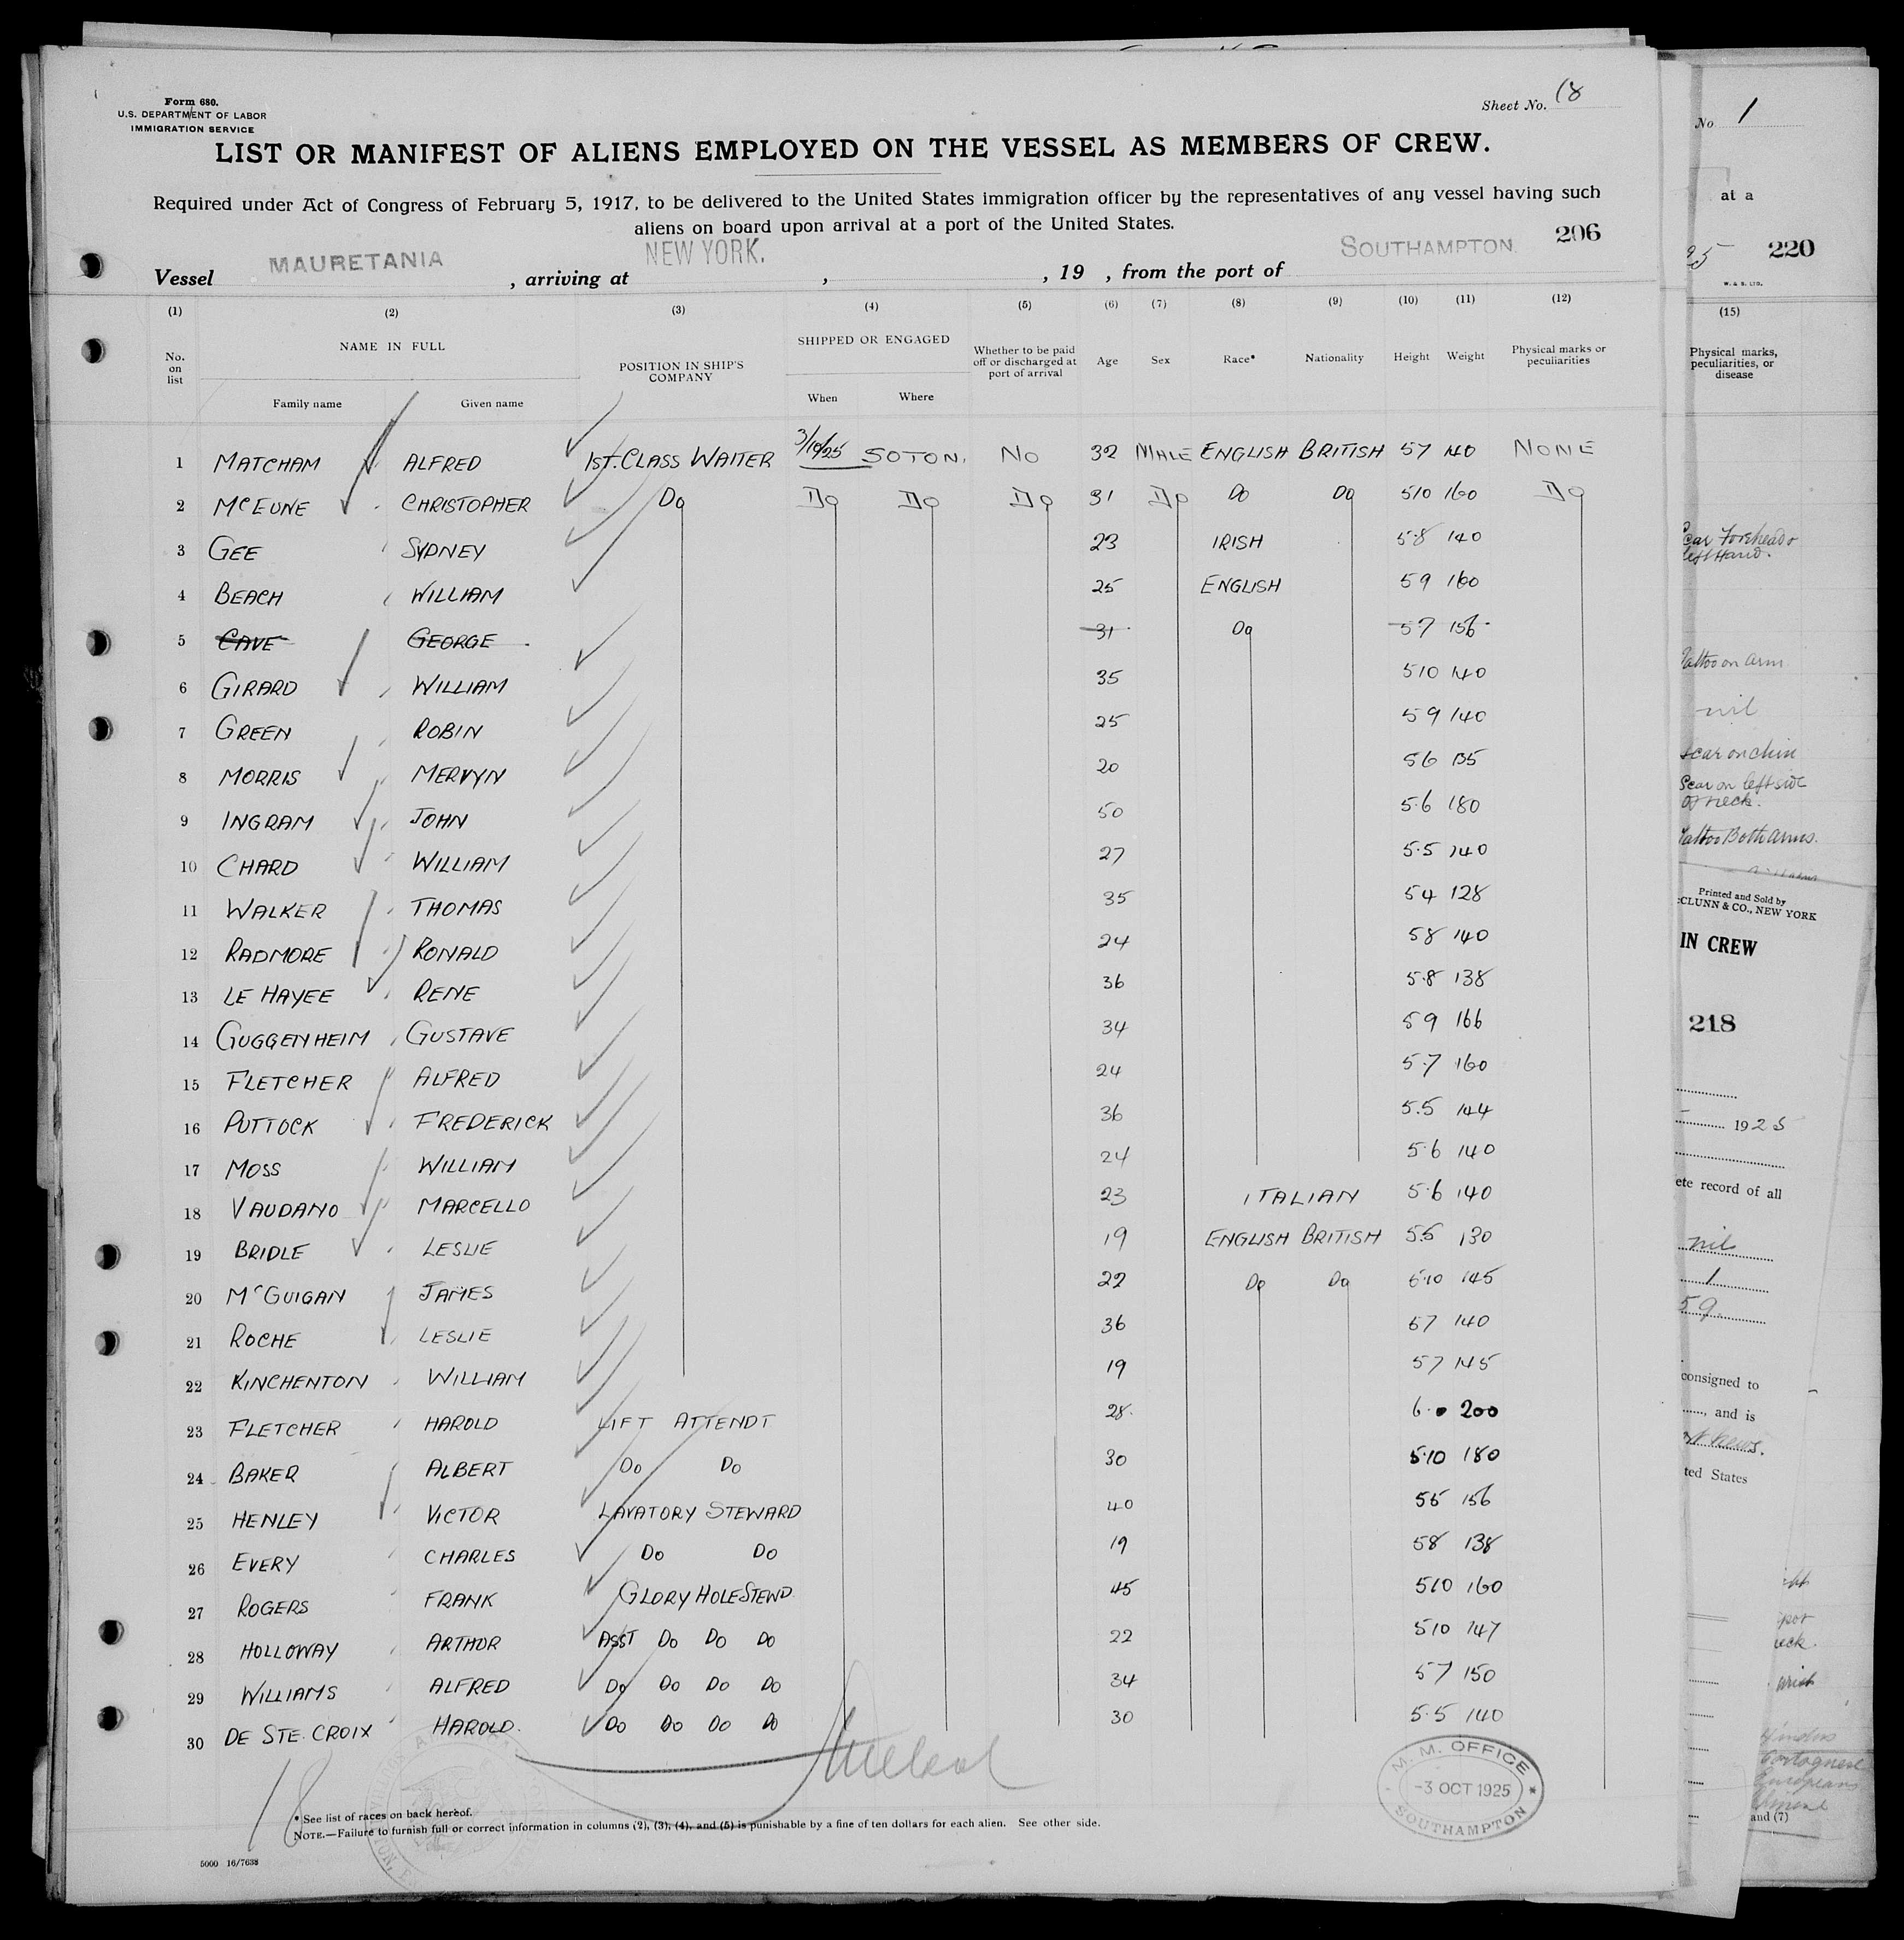 Form 680.
U.S. DEPARTMENT OF LABOR
IMMIGRATION SERVICE
Sheet No. 18
LIST OR MANIFEST OF ALIENS EMPLOYED ON THE VESSEL AS MEMBERS OF CREW.
Required under Act of Congress of February 5, 1917, to be delivered to the United States immigration officer by the representatives of any vessel having such
aliens on board upon arrival at a port of the United States.
206
Vessel MAURETANIA, arriving at NEW YORK. , , 19 , from the port of SOUTHAMPTON
(1) (2) (3) (4) (5) (6) (7) (8) (9) (10) (11) (12)
No. on list NAME IN FULL POSITION IN SHIP'S COMPANY SHIPPED OR ENGAGED Whether to be paid off or discharged at port of arrival Age Sex Race* Nationality Height Weight Physical marks or peculiarities
Family name Given name When Where
1 MATCHAM ALFRED 1st. CLASS WAITER 3/10/25 SOTON. NO 32 MALE ENGLISH BRITISH 57 140 NONE
2 McEUNE CHRISTOPHER Do Do Do Do 31 Do Do Do 510 160 Do
3 GEE SYDNEY 23 IRISH 5·8 140
4 BEACH WILLIAM 25 ENGLISH 59 160
5 CAVE GEORGE 31 Do 57 156
6 GIRARD WILLIAM 35 510 140
7 GREEN ROBIN 25 59 140
8 MORRIS MERVYN 20 56 135
9 INGRAM JOHN 50 5·6 180
10 CHARD WILLIAM 27 5·5 140
11 WALKER THOMAS 35 54 128
12 RADMORE RONALD 24 58 140
13 LE HAYEE RENE 36 5·8 138
14 GUGGENHEIM GUSTAVE 34 59 166
15 FLETCHER ALFRED 24 5·7 160
16 PUTTOCK FREDERICK 36 5.5 144
17 MOSS WILLIAM 24 5·6 140
18 VAUDANO MARCELLO 23 ITALIAN 5·6 140
19 BRIDLE LESLIE 19 ENGLISH BRITISH 5.5 130
20 McGUIGAN JAMES 22 Do Do 5·10 145
21 ROCHE LESLIE 36 57 140
22 KINCHENTON WILLIAM 19 57 145
23 FLETCHER HAROLD LIFT ATTENDT 28 6·0 200
24 BAKER ALBERT Do Do 30 5·10 180
25 HENLEY VICTOR LAVATORY STEWARD 40 55 156
26 EVERY CHARLES Do Do 19 58 138
27 ROGERS FRANK GLORY HOLE STEWD 45 510 160
28 HOLLOWAY ARTHUR ASST Do Do Do 22 510 147
29 WILLIAMS ALFRED Do Do Do Do 34 57 150
30 DE STE. CROIX HAROLD. Do Do Do Do 30 5·5 140
18
M. M. OFFICE
-3 OCT 1925
SOUTHAMPTON
* See list of races on back hereof.
NOTE.—Failure to furnish full or correct information in columns (2), (3), (4), and (5) is punishable by a fine of ten dollars for each alien. See other side.
5000 16/7638
No 1
at a
220
W. & S. LTD.
(15)
Physical marks,
peculiarities, or
disease
Scar Forehead &
left Hand.
Tattoo on arm
nil
scar on chin
Scar on left side
of neck.
Tattoo Both arms.
Printed and Sold by
CLUNN & CO., NEW YORK
IN CREW
218
1925
ete record of all
nil
1
59
consigned to
, and is
ted States
and (7)